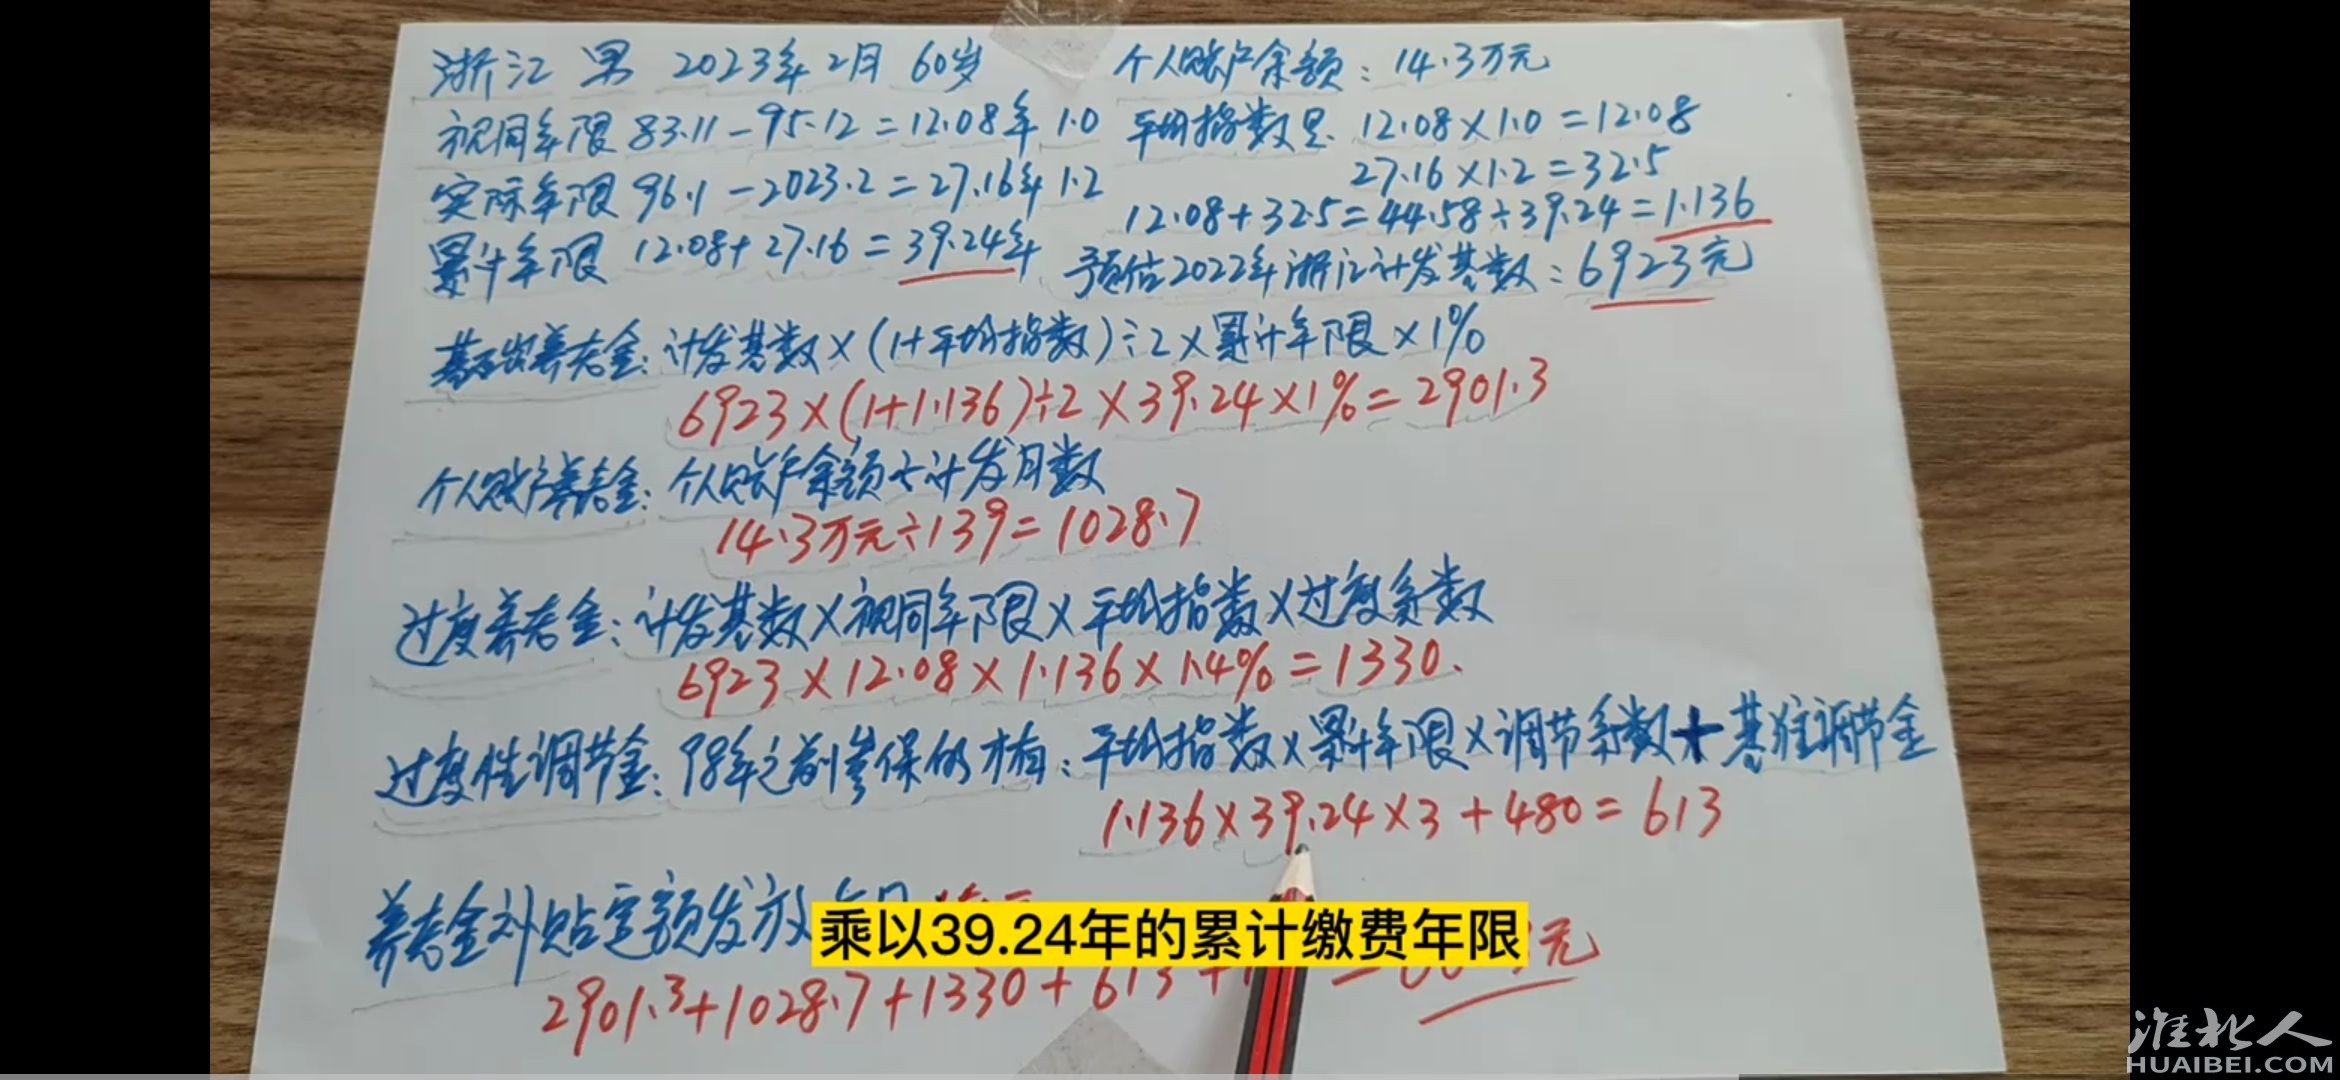 浙江 男 2023年2月 60岁
视同年限 83.11-95.12=12.08年 1.0
实际年限 96.1-2023.2=27.16年 1.2
累计年限 12.08+27.16=39.24年
个人账户余额:14.3万元
平均指数是 12.08×1.0=12.08
27.16×1.2=32.5
12.08+32.5=44.58÷39.24=1.136
预估2022年浙江计发基数:6923元
基础养老金:计发基数×(1+平均指数)÷2×累计年限×1%
6923×(1+1.136)÷2×39.24×1%=2901.3
个人账户养老金:个人账户余额÷计发月数
14.3万元÷139=1028.7
过度养老金:计发基数×视同年限×平均指数×过度系数
6923×12.08×1.136×1.4%=1330.
过度性调节金:98年之前参保的才有:平均指数×累计年限×调节系数+基准调节金
1.136×39.24×3+480=613
养老金补贴定额发放
乘以39.24年的累计缴费年限
2901.3+1028.7+1330+613+ = 元
淮北人
HUAIBEI.COM